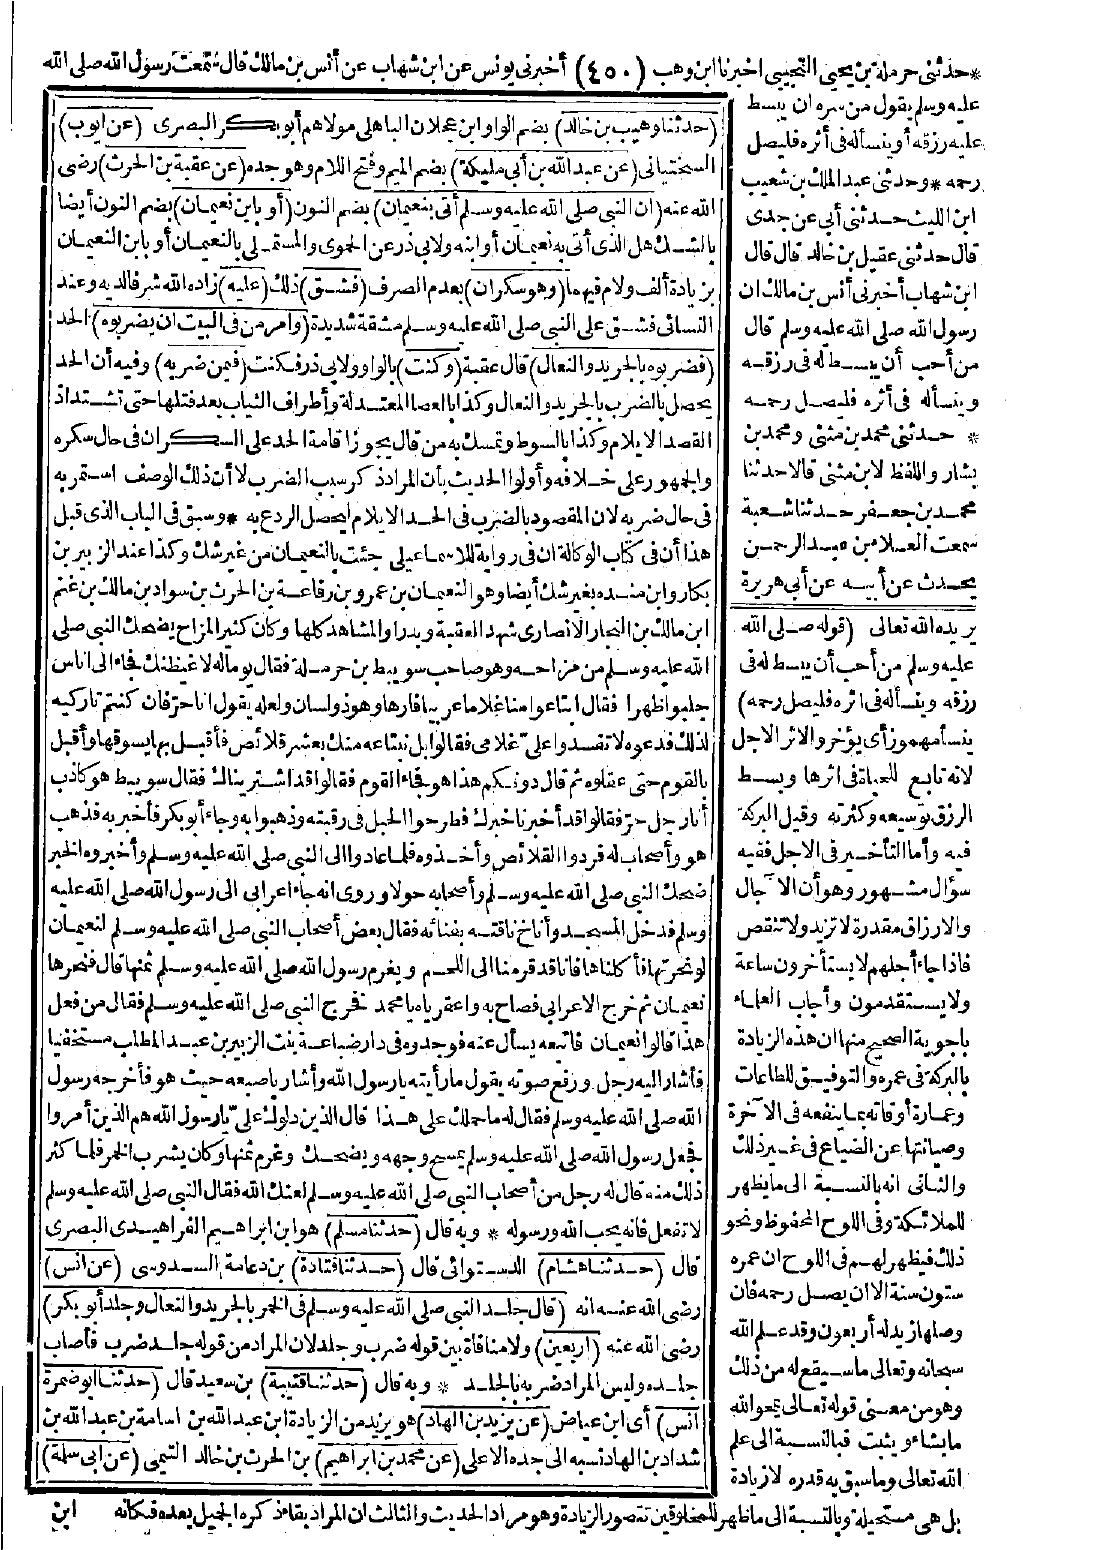 * حدثنى حرملة بن يحيى التجيبى اخبرنا ابن وهب (٤٥٠) أخبرنى يونس عن ابن شهاب عن أنس بن مالك قال سمعت رسول الله صلى الله
عليه وسلم يقول من سره ان يبسط
عليه رزقه أو ينسأله فى أثره فليصل
رحمه * وحدثنى عبد الملك بن شعيب
ابن الليث حدثنى أبى عن جدى
قال حدثنى عقيل بن خالد قال قال
ابن شهاب أخبرنى أنس بن مالك ان
رسول الله صلى الله عليه وسلم قال
من أحب أن يبسط له فى رزقه
وينسأله فى أثره فليصل رحمه
* حدثنى محمد بن مثنى ومحمد بن
بشار واللفظ لابن مثنى قالا حدثنا
محمد بن جعفر حدثنا شعبة
سمعت العلاء بن عبد الرحمن
يحدث عن أبيه عن أبى هريرة
يريده الله تعالى (قوله صلى الله
عليه وسلم من أحب أن يبسط له فى
رزقه وينسأله فى اثره فليصل رحمه)
ينسأ مهموز أى يؤخر والاثر الاجل
لانه تابع للحياة فى اثرها وبسط
الرزق توسيعه وكثرته وقيل البركة
فيه وأما التأخير فى الاجل ففيه
سؤال مشهور وهو أن الآجال
والارزاق مقدرة لا تزيد ولا تنقص
فاذا جاء أجلهم لا يستأخرون ساعة
ولا يستقدمون وأجاب العلماء
باجوبة الصحيح منها ان هذه الزيادة
بالبركة فى عمره والتوفيق للطاعات
وعمارة أوقاته بما ينفعه فى الآخرة
وصيانتها عن الضياع فى غير ذلك
والثانى انه بالنسبة الى ما يظهر
للملائكة وفى اللوح المحفوظ ونحو
ذلك فيظهر لهم فى اللوح ان عمره
ستون سنة الا ان يصل رحمه فان
وصلها زيد له أربعون وقد علم الله
سبحانه وتعالى ما سيقع له من ذلك
وهو من معنى قوله تعالى يمحو الله
ما يشاء ويثبت فبالنسبة الى علم
الله تعالى وما سبق به قدره لا زيادة
بل هى مستحيلة وبالنسبة الى ما ظهر للمخلوقين تتصور الزيادة وهو مراد الحديث والثالث ان المراد بقاء ذكره الجميل بعده فكانه ابن
(حدثنا وهيب بن خالد) بضم الواو ابن عجلان الباهلى مولاهم أبو بكر البصرى (عن ايوب)
السختيانى (عن عبد الله بن أبى مليكة) بضم الميم وفتح اللام وهو جده (عن عقبة بن الحرث) رضى
الله عنه (ان النبى صلى الله عليه وسلم أتى بنعيمان) بضم النون (أو بابن نعيمان) بضم النون أيضا
بالشك هل الذى أتى به نعيمان أو ابنه ولابى ذر عن الحموى والمستملى بالنعيمان أو بابن النعيمان
بزيادة ألف ولام فيهما (وهو سكران) بعدم الصرف (فشق) ذلك (عليه) زاده الله شرفا لديه وعند
النسائى فشق على النبى صلى الله عليه وسلم مشقة شديدة (وأمر من فى البيت ان يضربوه) الحد
(فضربوه بالجريد والنعال) قال عقبة (وكنت) بالواو ولابى ذر فكنت (فيمن ضربه) وفيه أن الحد
يحصل بالضرب بالجريد والنعال وكذا بالعصا المعتدلة وأطراف الثياب بعد فتلها حتى تشتد اذ
القصد الايلام وكذا بالسوط وتمسك به من قال يجوز اقامة الحد على السكران فى حال سكره
والجمهور على خلافه وأولوا الحديث بأن المراد ذكر سبب الضرب لا أن ذلك الوصف استمر به
فى حال ضربه لان المقصود بالضرب فى الحد الايلام ليحصل الردع به * وسبق فى الباب الذى قبل
هذا أن فى كتاب الوكالة ان فى رواية للاسماعيلى جئت بالنعيمان من غير شك وكذا عند الزبير بن
بكار وابن منده بغير شك أيضا وهو النعيمان بن عمرو بن رفاعة بن الحرث بن سواد بن مالك بن غنم
ابن مالك بن النجار الانصارى شهد العقبة وبدرا والمشاهد كلها وكان كثير المزاح يضحك النبى صلى
الله عليه وسلم من مزاحه وهو صاحب سويبط بن حرملة فقال يوما له لاغيظنك فجاء الى اناس
جلبوا ظهرا فقال ابتاعوا منا غلاما عربيا فارها وهو ذو لسان ولعله يقول انا حر فان كنتم تاركيه
لذلك فدعوه لا تفسدوا على غلامى فقالوا بل نبتاعه منك بعشرة قلائص فأقبل بها يسوقها وأقبل
بالقوم حتى عقلوه ثم قال دونكم هذا هو فجاء القوم فقالوا قد اشتريناك فقال سويبط هو كاذب
أنا رجل حر فقالوا قد أخبرنا خبرك فطرحوا الحبل فى رقبته وذهبوا به وجاء أبو بكر فأخبر به فذهب
هو وأصحاب له فردوا القلائص وأخذوه فلما عادوا الى النبى صلى الله عليه وسلم وأخبروه الخبر
ضحك النبى صلى الله عليه وسلم وأصحابه حولا وروى انه جاء اعرابى الى رسول الله صلى الله عليه
وسلم فدخل المسجد وأناخ ناقته بفنائه فقال بعض أصحاب النبى صلى الله عليه وسلم لنعيمان
لو نحرتها فأكلناها فانا قد قرمنا الى اللحم ويغرم رسول الله صلى الله عليه وسلم ثمنها قال فنحرها
نعيمان ثم خرج الاعرابى فصاح به واعقراه يا محمد فخرج النبى صلى الله عليه وسلم فقال من فعل
هذا قالوا نعيمان فاتبعه يسأل عنه فوجدوه فى دار ضباعة بنت الزبير بن عبد المطلب مستخفيا
فأشار اليه رجل ورفع صوته يقول ما رأيته يا رسول الله وأشار باصبعه حيث هو فأخرجه رسول
الله صلى الله عليه وسلم فقال له ما حملك على هذا قال الذين دلوك على يا رسول الله هم الذين أمروا
فجعل رسول الله صلى الله عليه وسلم يمسح وجهه ويضحك وغرم ثمنها وكان يشرب الخمر فلما كثر
ذلك منه قال له رجل من أصحاب النبى صلى الله عليه وسلم لعنك الله فقال النبى صلى الله عليه وسلم
لا تفعل فانه يحب الله ورسوله * وبه قال (حدثنا مسلم) هو ابن ابراهيم الفراهيدى البصرى
قال (حدثنا هشام) الدستوائى قال (حدثنا قتادة) بن دعامة السدوسى (عن أنس)
رضى الله عنه انه (قال جلد النبى صلى الله عليه وسلم فى الخمر بالجريد والنعال وجلد أبو بكر)
رضى الله عنه (أربعين) ولا منافاة بين قوله ضرب وجلد لان المراد من قوله جلد ضرب فأصاب
جلده وليس المراد ضربه بالجلد * وبه قال (حدثنا قتيبة) بن سعيد قال (حدثنا ابو ضمرة
أنس) أى ابن عياض (عن يزيد بن الهاد) هو يزيد من الزيادة ابن عبد الله بن اسامة بن عبد الله بن
شداد بن الهاد نسبه الى جده الاعلى (عن محمد بن ابراهيم) بن الحرث بن خالد التيمى (عن ابى سلمة)